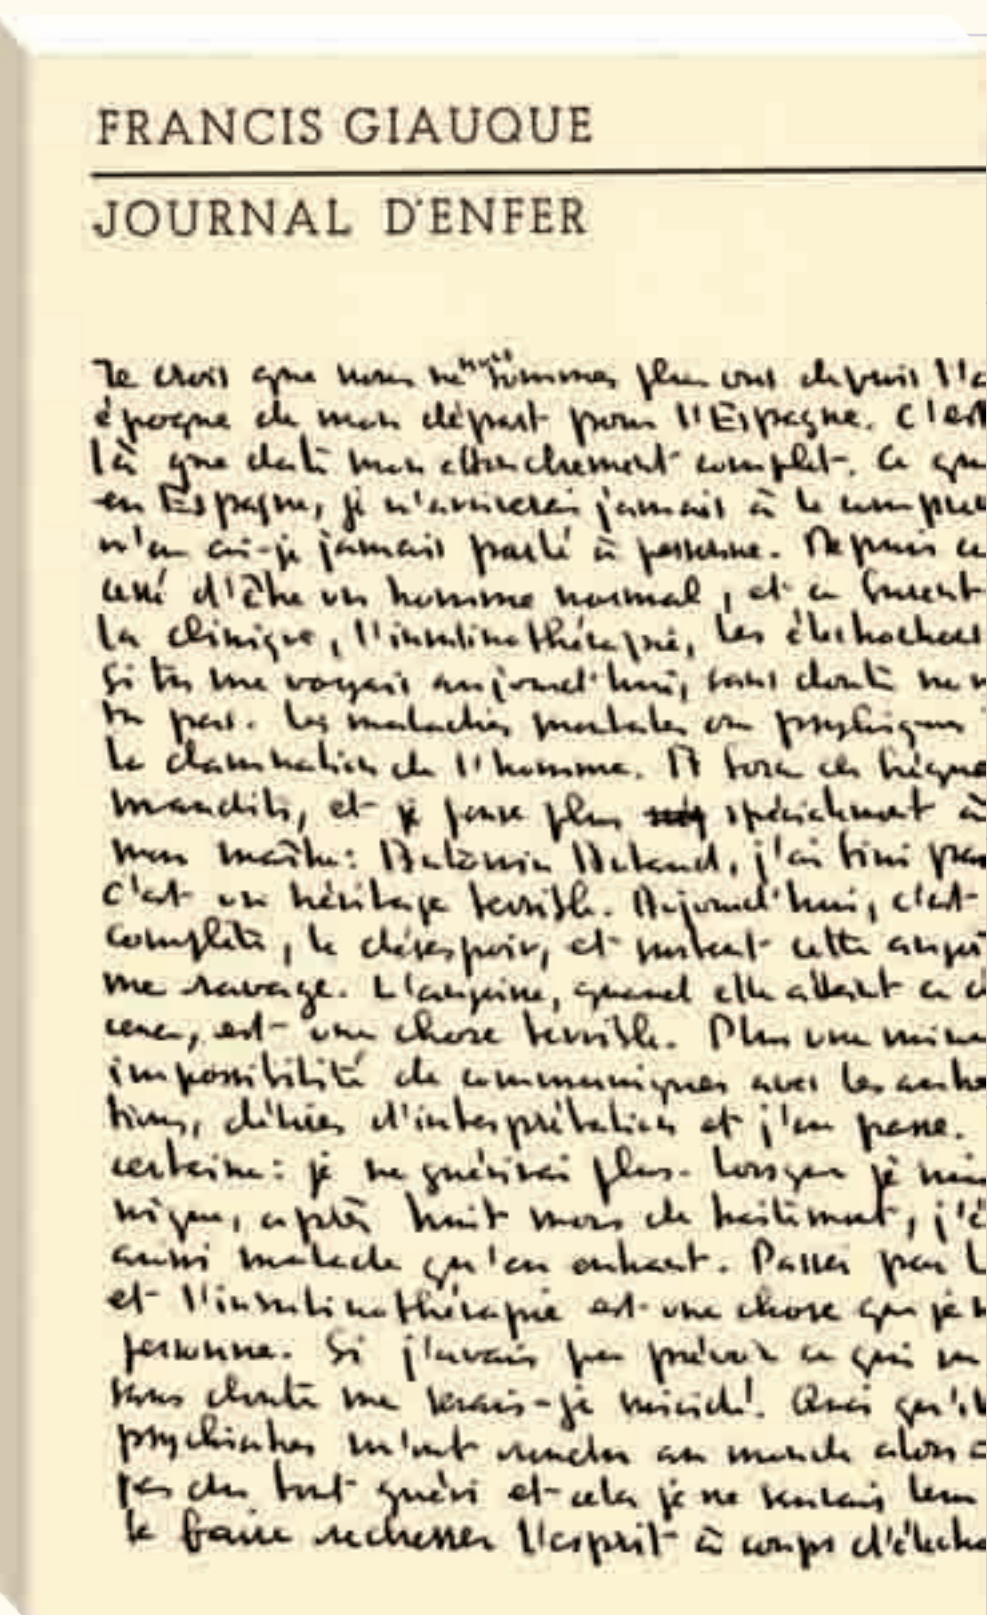 FRANCIS GIAUQUE
JOURNAL D'ENFER
Je crois que nous ne nous sommes plus vus depuis l'a
époque de mon départ pour l'Espagne. C'est
là que date mon détachement complet. Ce qu
en Espagne, je n'arriverai jamais à le compre
n'en ai-je jamais parlé à personne. Depuis ce
cessé d'être un homme normal, et ce furent
la clinique, l'insulinothérapie, les électrochocs
Si tu me voyais aujourd'hui, sans doute ne m
tu pas. Les maladies mentales ou psychiques
la damnation de l'homme. A force de
maudits, et je pense plus spécialement à
mon maître: Antonin Artaud, j'ai fini par
c'est un héritage terrible. Aujourd'hui, c'est
complète, le désespoir, et surtout cette angoi
me ravage. L'angoisse, quand elle atteint ce d
est une chose terrible. Plus une minu
impossibilité de communiquer avec les autre
tions, délires d'interprétation et j'en passe.
certaine: je ne guérirai plus. Lorsque je
nique, après huit mois de traitement, j'é
aussi malade qu'en entrant. Passer par l
et l'insulinothérapie est une chose que je n
personne. Si j'avais pu prévoir ce qui m
sans doute me serais-je suicidé. Quoi qu'il
psychiatres m'ont rendu au monde alors
pas du tout guéri et cela je ne
le faire redresser l'esprit à coups d'électro